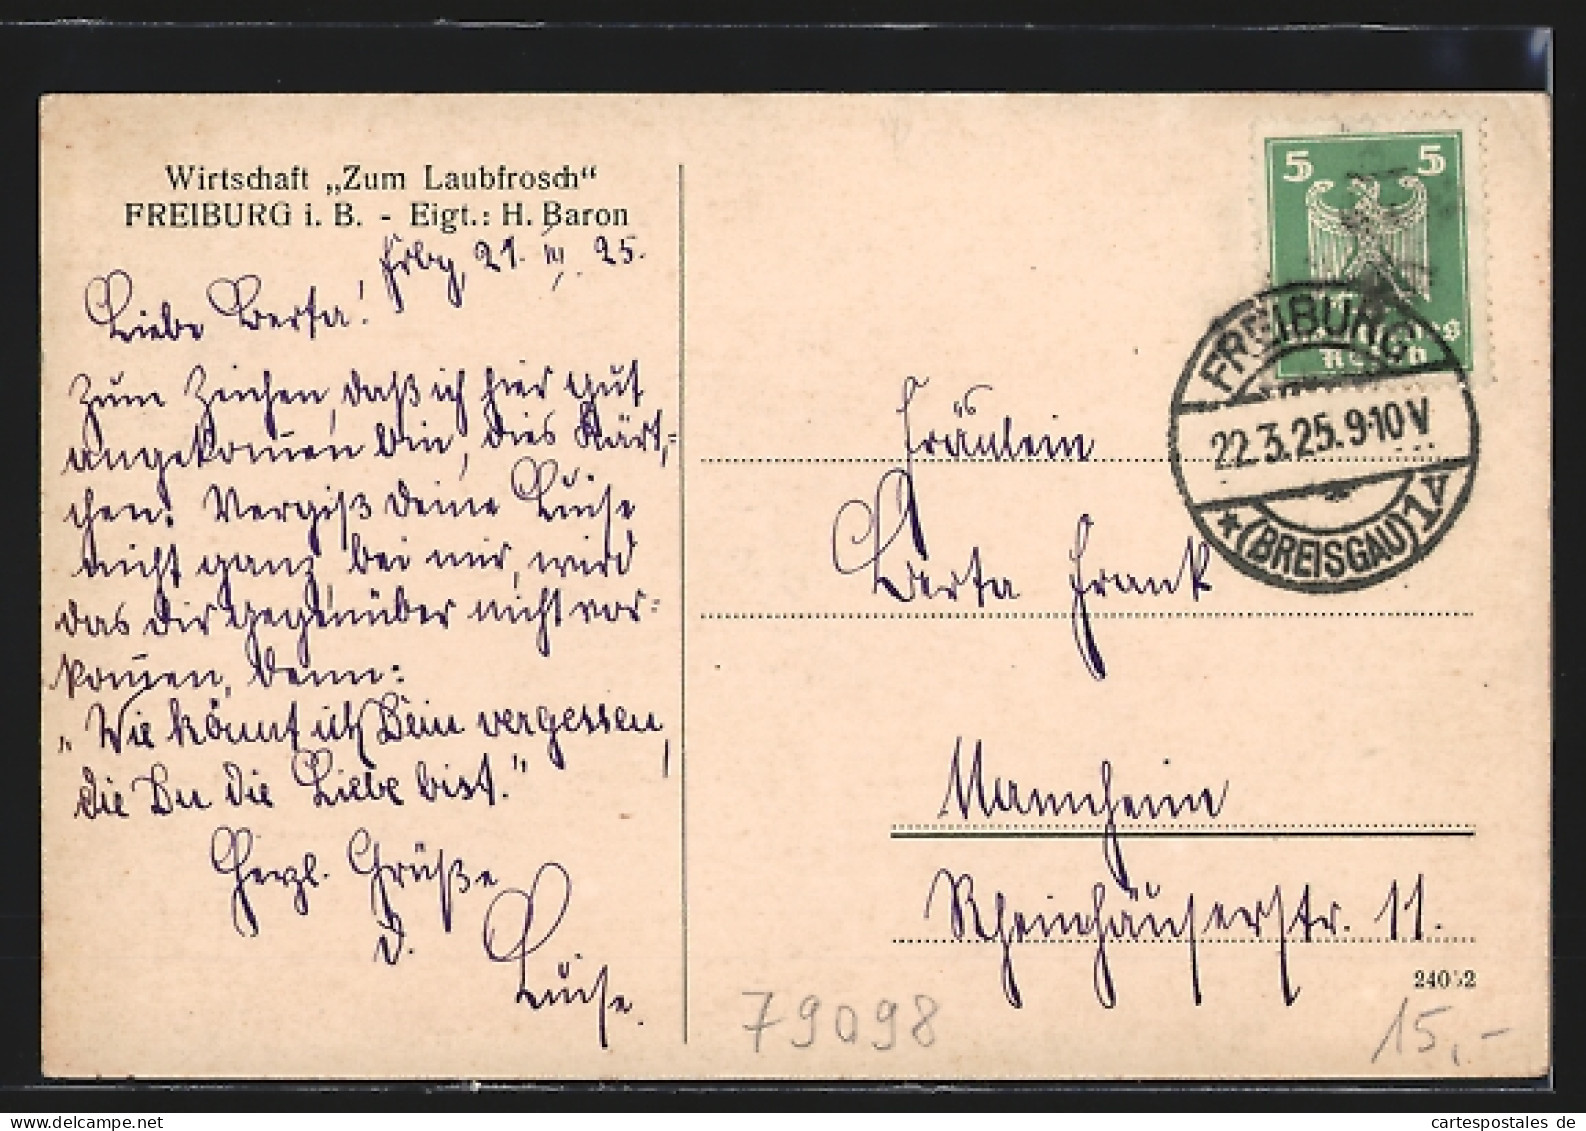 Wirtschaft „Zum Laubfrosch“
FREIBURG i. B. - Eigt.: H. Baron
Frbg, 21. III. 25.
Liebe Berta!
Zum Zeichen, daß ich hier gut
angekom̄en bin, dies Kärt-
chen. Vergiß deine Luise
nicht ganz, bei mir, wird
das dir gegenüber nicht vor-
kom̄en, denn:
„Wie kön̄t ich Dein vergessen,
die Du die Liebe bist.“
Herzl. Grüße
d. Luise.
5 5
Deutsches
Reich
FREIBURG
22.3.25.9-10V
* (BREISGAU) 1V
Fräulein
Berta Frank
Mannheim
Rheinhäuserstr. 11.
24052
79098
15,-
cartespostales de